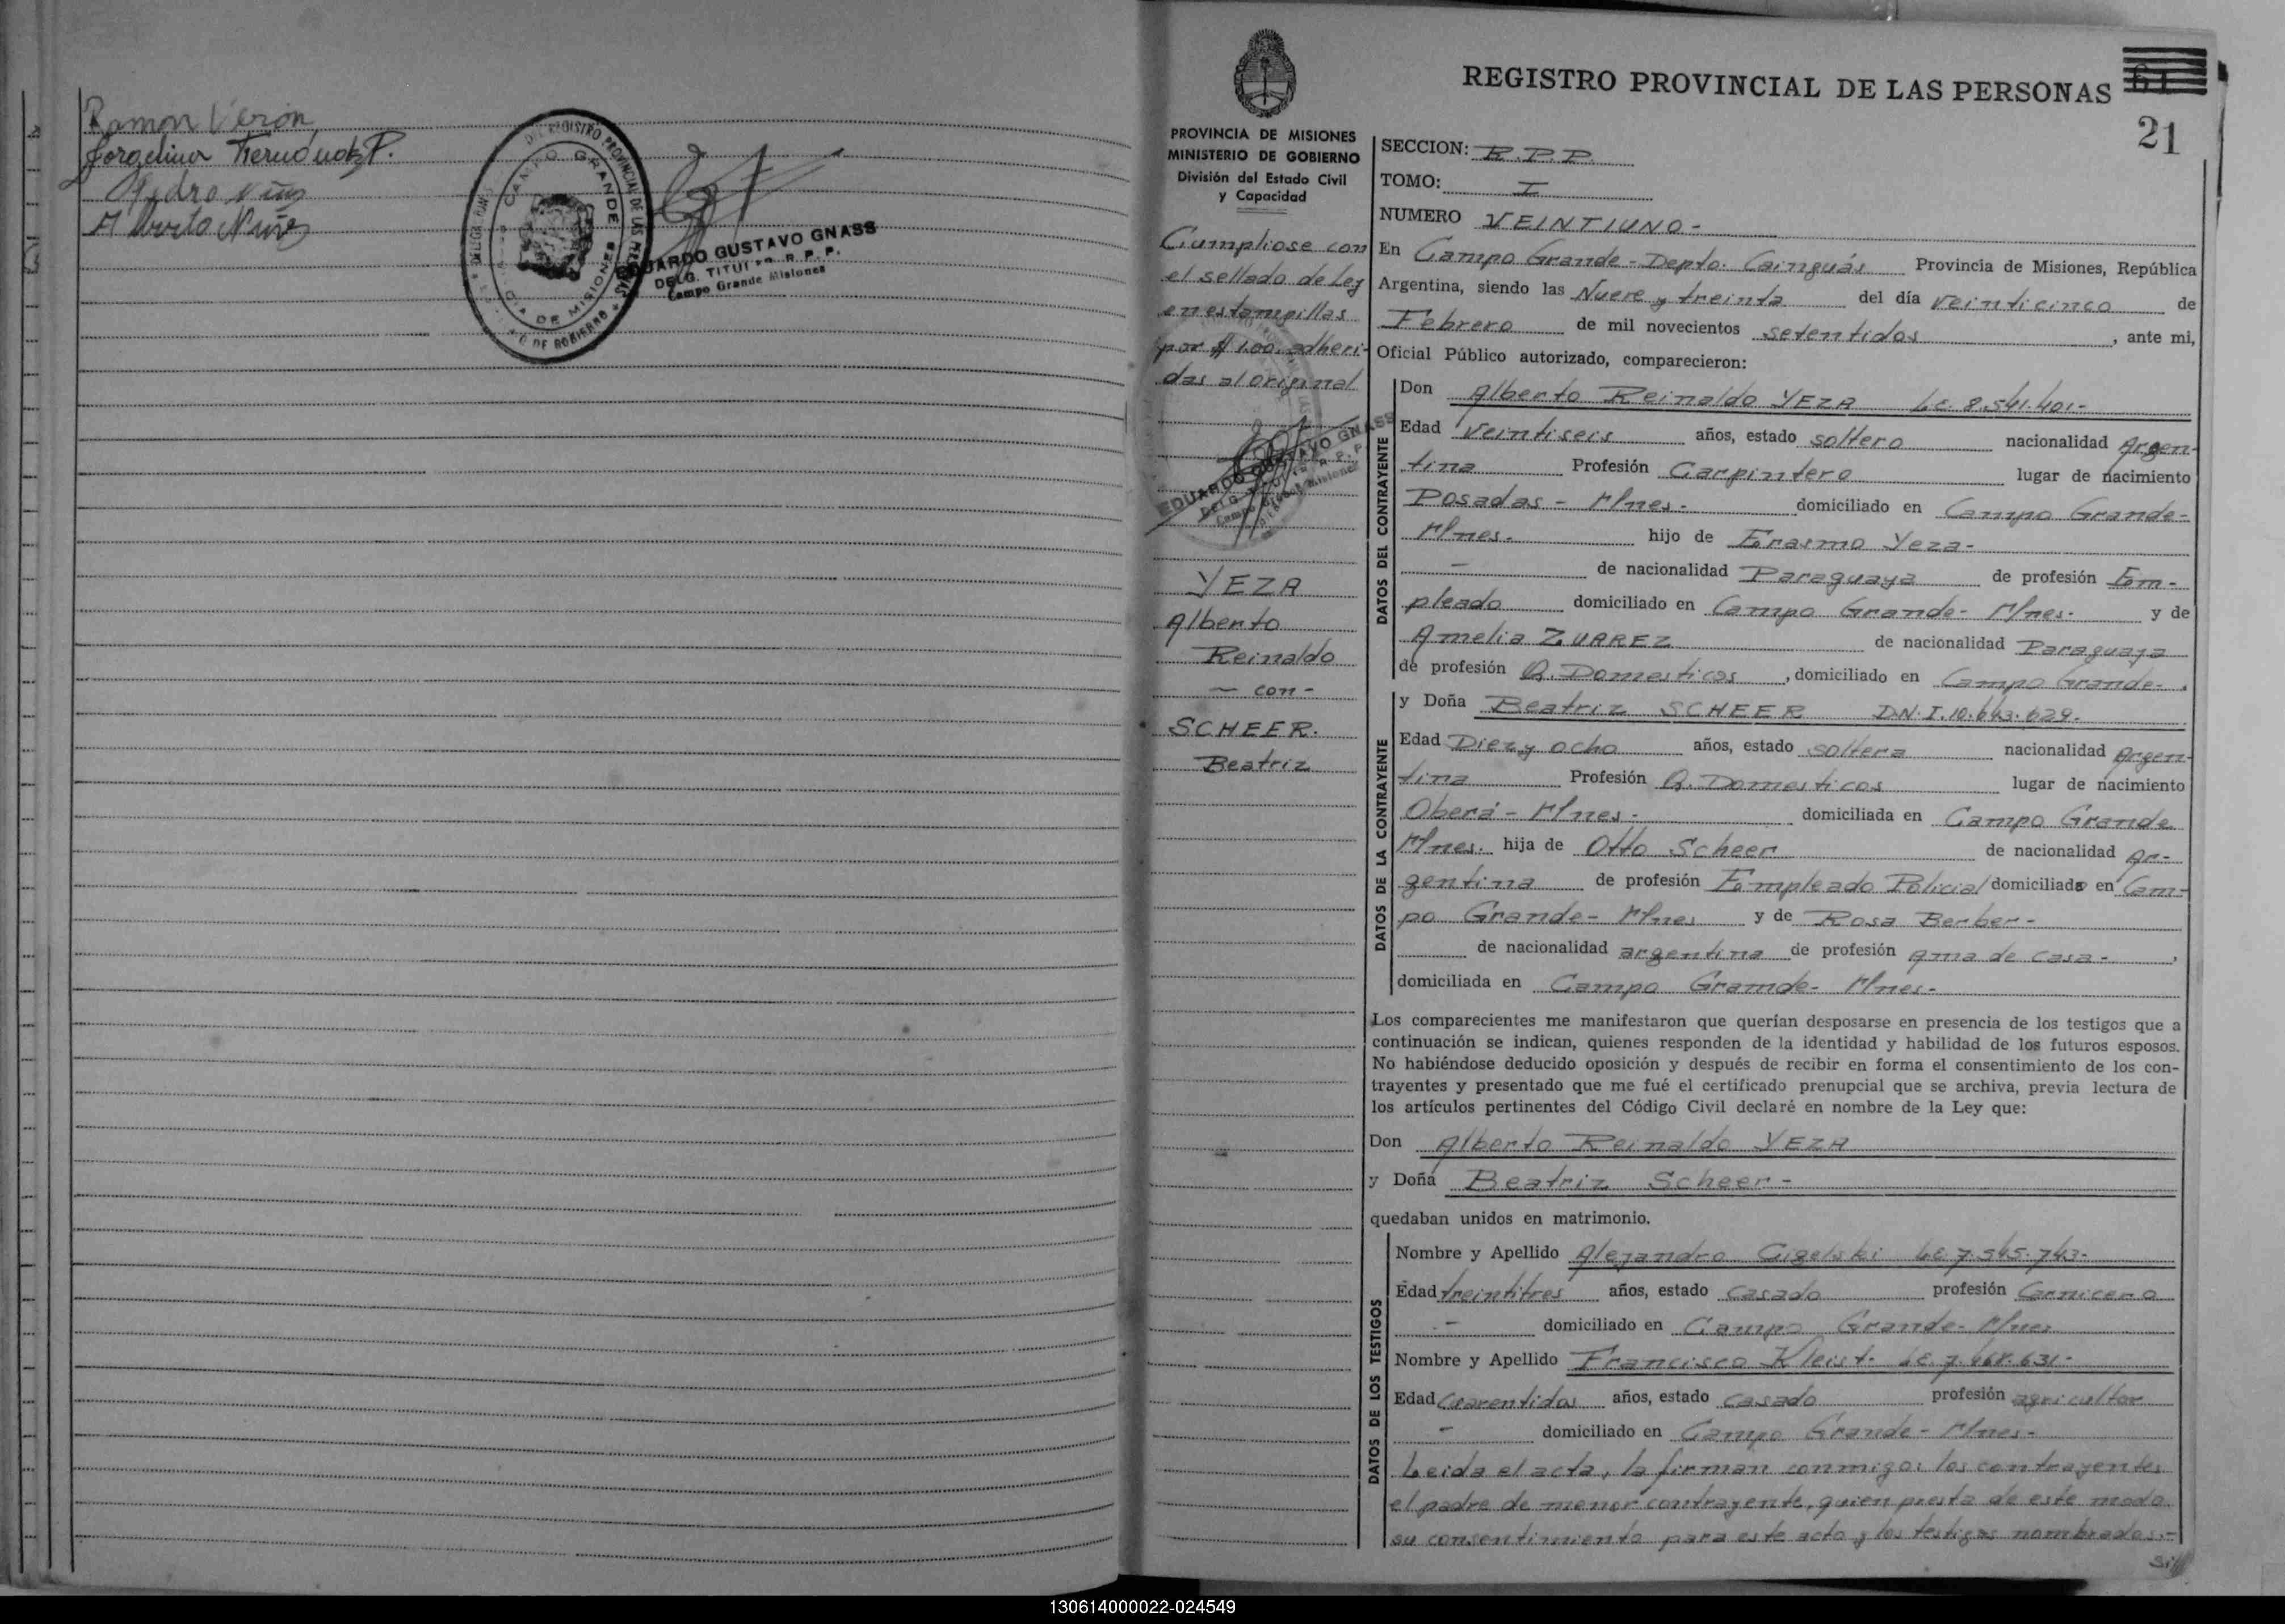 Ramon Verón
Jorgelina Fernández P.
Pedro Niño
Alberto Nuñez
DEL REGISTRO PROVINCIAL DE LAS PERSONAS
CAMPO GRANDE
DE MISIONES
DE GOBIERNO
EDUARDO GUSTAVO GNASS
DELG. TITULAR R. P. P.
Campo Grande Misiones
REGISTRO PROVINCIAL DE LAS PERSONAS
61
21
PROVINCIA DE MISIONES
MINISTERIO DE GOBIERNO
División del Estado Civil
y Capacidad
Cumpliose con
el sellado de Ley
en estampillas
por $ 1.00. adheri-
das al original
EDUARDO GUSTAVO GNASS
DELG. TITULAR R. P. P.
Campo Grande Misiones
YEZA
Alberto
Reinaldo
- con -
SCHEER.
Beatriz
SECCION: R.P.P.
TOMO: I
NUMERO VEINTIUNO-
En Campo Grande - Depto. Cainguás Provincia de Misiones, República
Argentina, siendo las Nueve y treinta del día veinticinco de
Febrero de mil novecientos setentidos, ante mi,
Oficial Público autorizado, comparecieron:
DATOS DEL CONTRAYENTE
Don Alberto Reinaldo YEZA L.E. 8.541.401-
Edad Veintiseis años, estado soltero nacionalidad Argen-
tina Profesión Carpintero lugar de nacimiento
Posadas - M/nes. domiciliado en Campo Grande-
M/nes. hijo de Erasmo Yeza-
- de nacionalidad Paraguaya de profesión Em-
pleado domiciliado en Campo Grande- M/nes. y de
Amelia ZUAREZ de nacionalidad Paraguaya
de profesión Q. Domesticos, domiciliado en Campo Grande-.
DATOS DE LA CONTRAYENTE
y Doña Beatriz SCHEER D.N.I. 10.643.629.
Edad Diez y ocho años, estado soltera nacionalidad Argen-
tina Profesión Q. Domesticos lugar de nacimiento
Oberá - M/nes. domiciliada en Campo Grande
M/nes. hija de Otto Scheer de nacionalidad Ar-
gentina de profesión Empleado Policial domiciliado en Cam-
po Grande- M/nes y de Rosa Berber-
de nacionalidad argentina de profesión Ama de casa-,
domiciliada en Campo Gramde- M/nes-
Los comparecientes me manifestaron que querían desposarse en presencia de los testigos que a
continuación se indican, quienes responden de la identidad y habilidad de los futuros esposos.
No habiéndose deducido oposición y después de recibir en forma el consentimiento de los con-
trayentes y presentado que me fué el certificado prenupcial que se archiva, previa lectura de
los artículos pertinentes del Código Civil declaré en nombre de la Ley que:
Don Alberto Reinaldo YEZA
y Doña Beatriz Scheer-
quedaban unidos en matrimonio.
DATOS DE LOS TESTIGOS
Nombre y Apellido Alejandro Cigelski L.E. 7.545.743-
Edad treintitres años, estado casado profesión Carnicero
- domiciliado en Campo Grande- M/nes
Nombre y Apellido Francisco Kleist- L.E. 7.468.631-
Edad Cuarentidos años, estado casado profesión agricultor
- domiciliado en Campo Grande- M/nes-
Leida el acta, la firman conmigo: los contrayentes
el padre de menor contrayente, quien presta de este modo
su consentimiento para este acto y los testigos nombrados.-
130614000022-024549